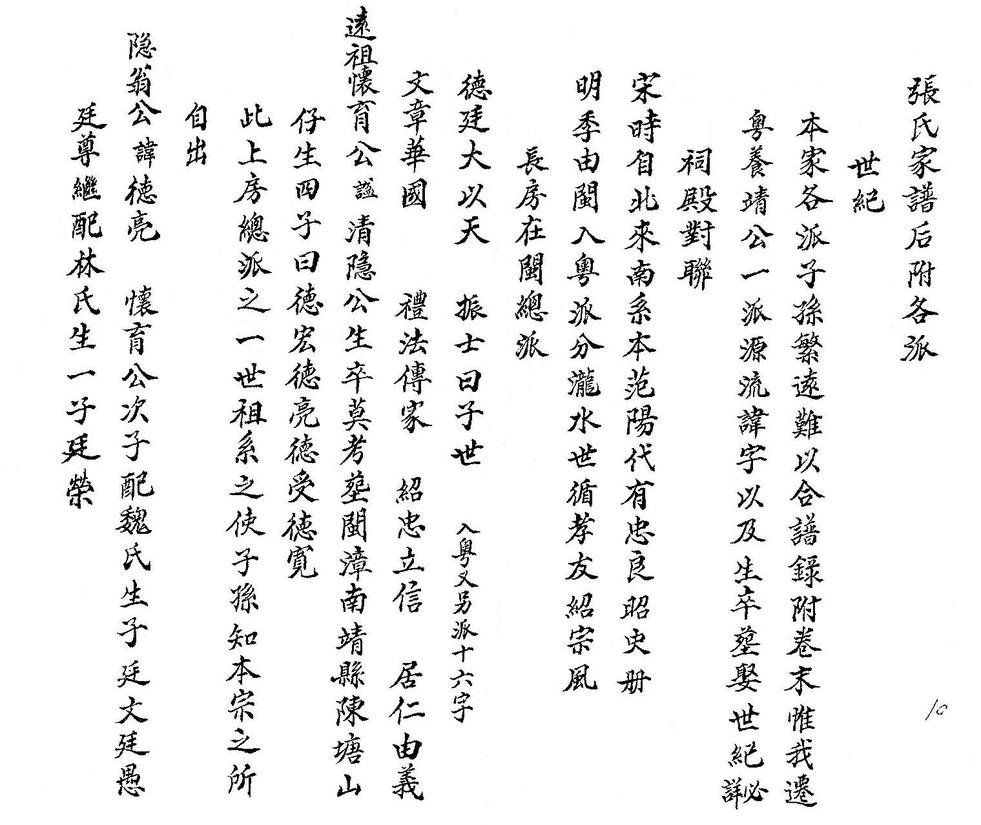 張氏家譜后附各派
世紀
本家各派子孫繁遠難以合譜錄附卷末惟我遷
粵養靖公一派源流諱字以及生卒塟娶世紀必詳
祠殿對聯
宋時自北來南系本范陽代有忠良昭史册
明季由閩入粵派分瀧水世循孝友紹宗風
長房在閩總派
德廷大以天 振士曰子世 入粵又另派十六字
文章華國 禮法傳家 紹忠立信 居仁由義
遠祖懷育公謚清隱公生卒莫考塟閩漳南靖縣陳塘山
仔生四子曰德宏德亮德受德寬
此上房總派之一世祖系之使子孫知本宗之所
自出
隐翁公諱德亮 懷育公次子配魏氏生子廷文廷愚
廷尊繼配林氏生一子廷榮
10